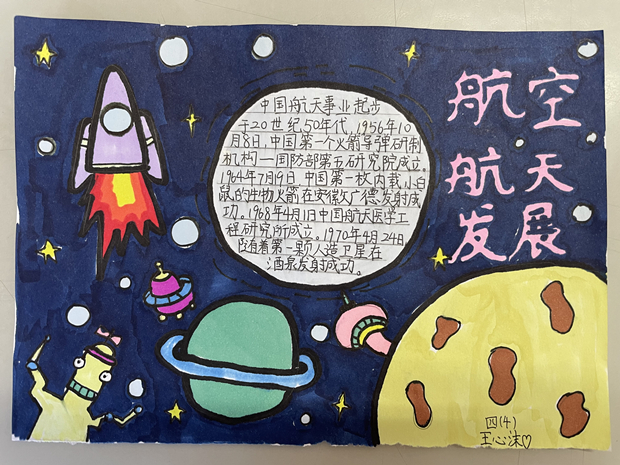 航空
航天
发展
中国航天事业起步
于20世纪50年代,1956年10
月8日,中国第一个火箭导弹研制
机构一国防部第五研究院成立。
1964年7月19日,中国第一枚内载小白
鼠的生物火箭在安徽广德发射成
功。1968年4月1日中国航天医学工
程研究所成立。1970年4月24日
随着第一颗人造卫星在
酒泉发射成功。
四(4)
王心沫♡